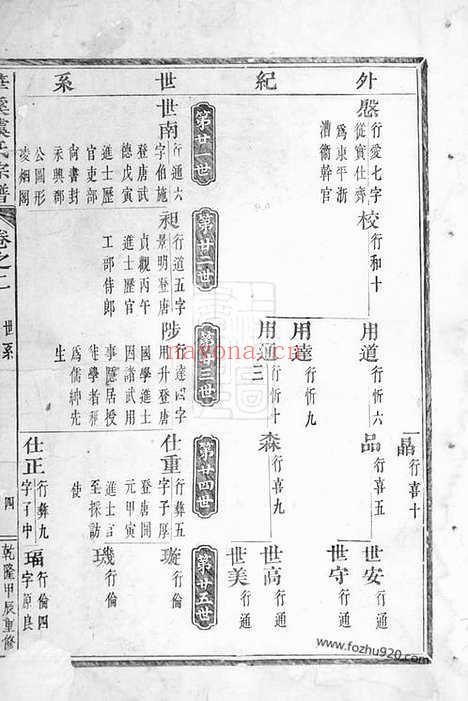 外紀世系
第廿一世
第廿二世
第廿三世
第廿四世
第廿五世
慇
行愛七字
從實仕齊
爲東平浙
漕衞幹官
校
行和十
用道
行忻六
用達
行忻九
用通
行忻十
三
晶
行喜十
品
行喜五
森
行喜九
世安
行通
世守
行通
世高
行通
世美
行通
世南
行通六
字伯施
登唐武
德戊寅
進士歷
官吏部
尙書封
永興郡
公圖形
凌烟閣
昶
行道五字
景明登唐
貞觀丙午
進士歷官
工部侍郎
陟
行達四字
用升登唐
國學進士
因諸武用
事隱居授
徒學者稱
爲儒紳先
生
仕重
行彝五
字子厚
登唐開
元甲寅
進士官
至採訪
使
仕正
行彝九
字子中
璇
行倫
璣
行倫
瑞
行倫四
字原良
氏宗譜
卷之二
世系
四
乾隆甲辰重修
nayona.cn
www.fozhu920.com